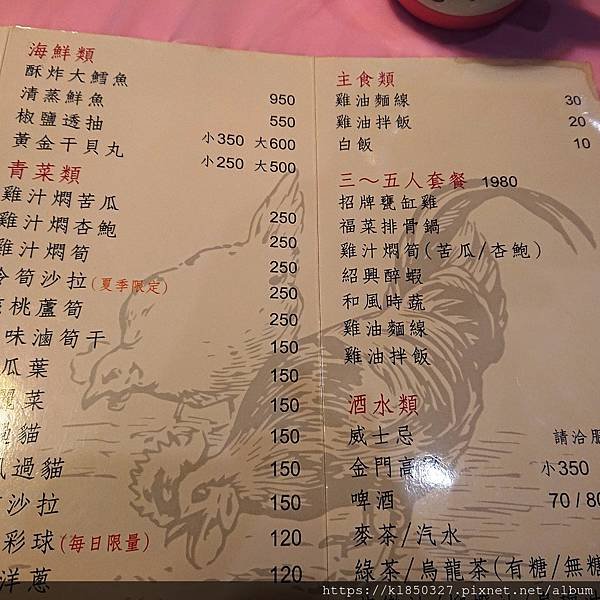 海鮮類
酥炸大鱈魚 950
清蒸鮮魚 550
椒鹽透抽 小350 大600
黃金干貝丸 小250 大500
青菜類
雞汁燜苦瓜 250
雞汁燜杏鮑 250
雞汁燜筍 250
筍沙拉(夏季限定) 250
桃蘆筍 250
味滷筍干 150
瓜葉 150
菜 150
貓 150
過貓 150
沙拉 150
彩球(每日限量) 120
洋蔥 120
主食類
雞油麵線 30
雞油拌飯 20
白飯 10
三～五人套餐 1980
招牌甕缸雞
福菜排骨鍋
雞汁燜筍(苦瓜/杏鮑)
紹興醉蝦
和風時蔬
雞油麵線
雞油拌飯
酒水類
威士忌 請洽服
金門高 小350
啤酒 70/80
麥茶/汽水
綠茶/烏龍茶(有糖/無糖
https://kl850327.pixnet.net/album